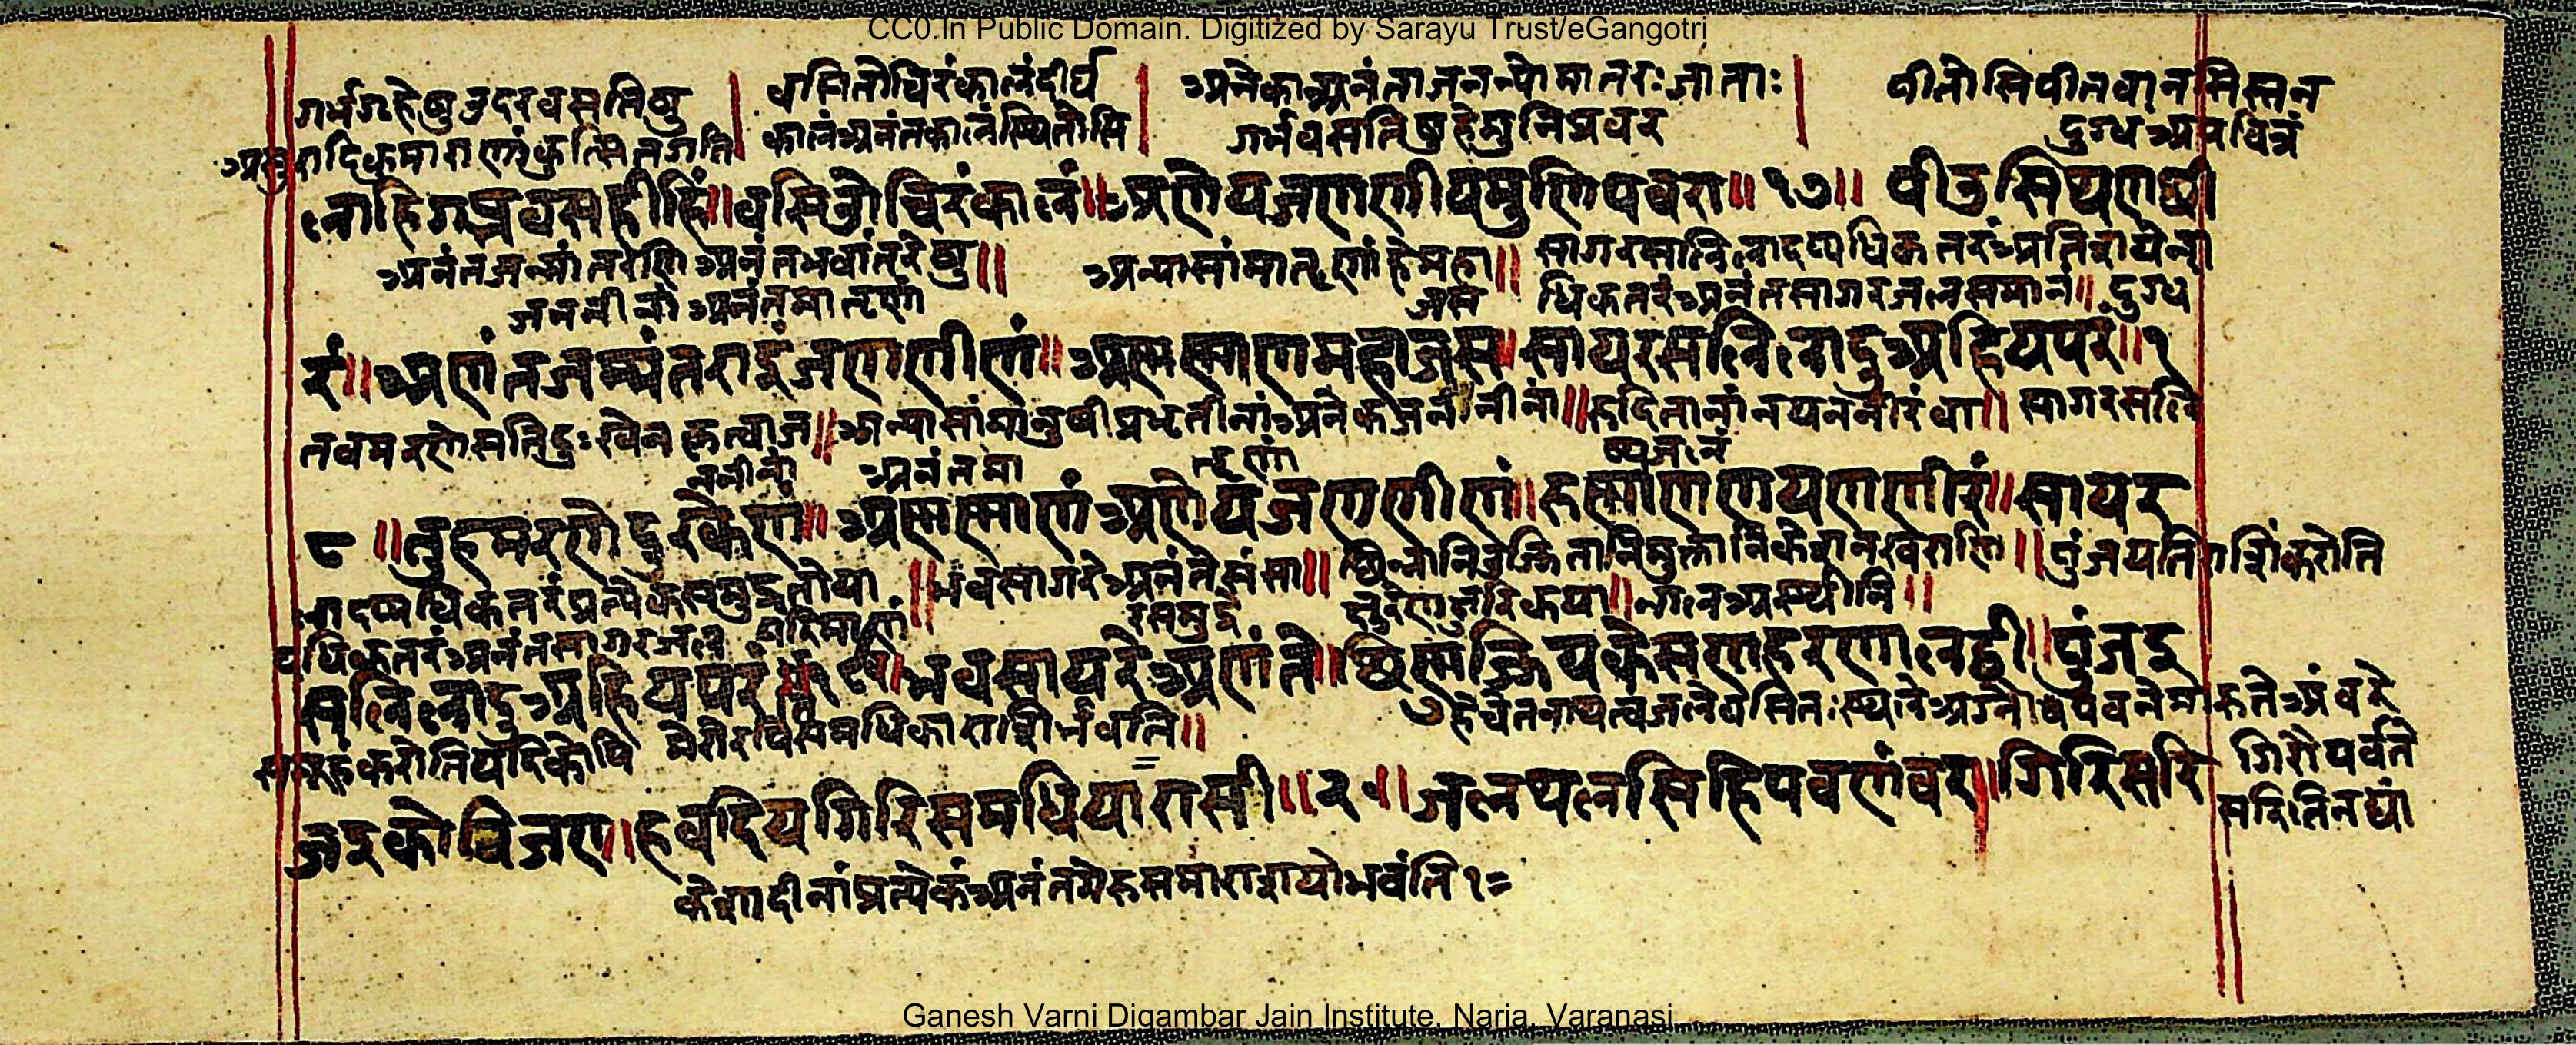 CC0.In Public Domain. Digitized by Sarayu Trust/eGangotri
गर्भगृहेषु उदरवसतिषु | वासितोचिरंकालंदीर्घ | अनेकाअनंताजनन्योमातरःजाताः | पीतोसिपीतवानसिस्तन
कालंअनंतकालंस्थितोसि गर्भवसतिषुहेमुनिप्रवर दुग्धंअपवित्रं
लाहिगब्भवसहीहिं॥वसिओचिरंकालं॥अणेयजणणीयमुणिपवरा॥१७॥ पीउसिथणछी
अनंतजन्मांतरेणिअनंतभवांतरेषु॥ अन्यासांमातृणांहेमहा॥ सागरसलिलादप्यधिकतरंअतिशयेना
जननीनां अनंतमातृणां जस धिकतरंअनंतसागरजलसमानं॥ दुग्ध
रं॥अणंतजम्मंतराइंजणणीणं॥अण्णण्णाणमहाजस॥सायरसलिलादुअहिययरं॥१
तवमरणेसतिदुःखेनकृत्वाज॥अन्यासांमानुषीप्रभृतीनांअनेकजननीनां॥रुदितानांनयननीरंवा॥ सागरसलि
ननीनां अनंतमा तृणां ष्पजलं
८॥तुहमरणेदुरकेणं॥अण्णण्णाणंअणेयजणणीणं॥रुण्णाणणयणणीरं॥सायर
लादप्यधिकतरंप्रत्येकसमुद्रतोया॥भवसागरेअनंतेसंसा॥छिन्नानिउज्झितानिमुक्तानिकेशनखराणि॥पुंजयतिराशिंकरोति
प्यधिकतरंअनंतसागरजल परिमाणं रसमुद्रे नालअस्थीनि॥
सलिलादुअहिययरं॥१९॥भवसायरेअणंते॥छिण्णुज्झियकेसणहरणालट्ठी॥पुंजइ
समूहंकरोतियदिकोपि मेरोरपिसमधिकाराशीर्भवति॥ हेचेतननाथत्वंजलेवसितःस्थलेअग्नौपवनेमारुतेअंबरे
गिरौपर्वते
जइकोविजए॥हवदियगिरिसमधियारासी॥२०॥जलथलसिहिपवणंवर॥गिरिसरि
सरितिनद्यां
केशादीनांप्रत्येकंअनंतमेरुसमाराशयोभवंति१=
Ganesh Varni Digambar Jain Institute, Naria, Varanasi